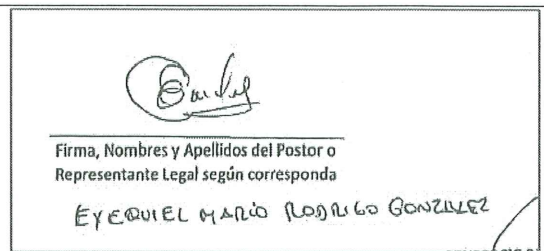 Firma, Nombres y Apellidos del Postor o
Representante Legal según corresponda
EYEQUIEL MARIO RODRIGO GONZALEZ